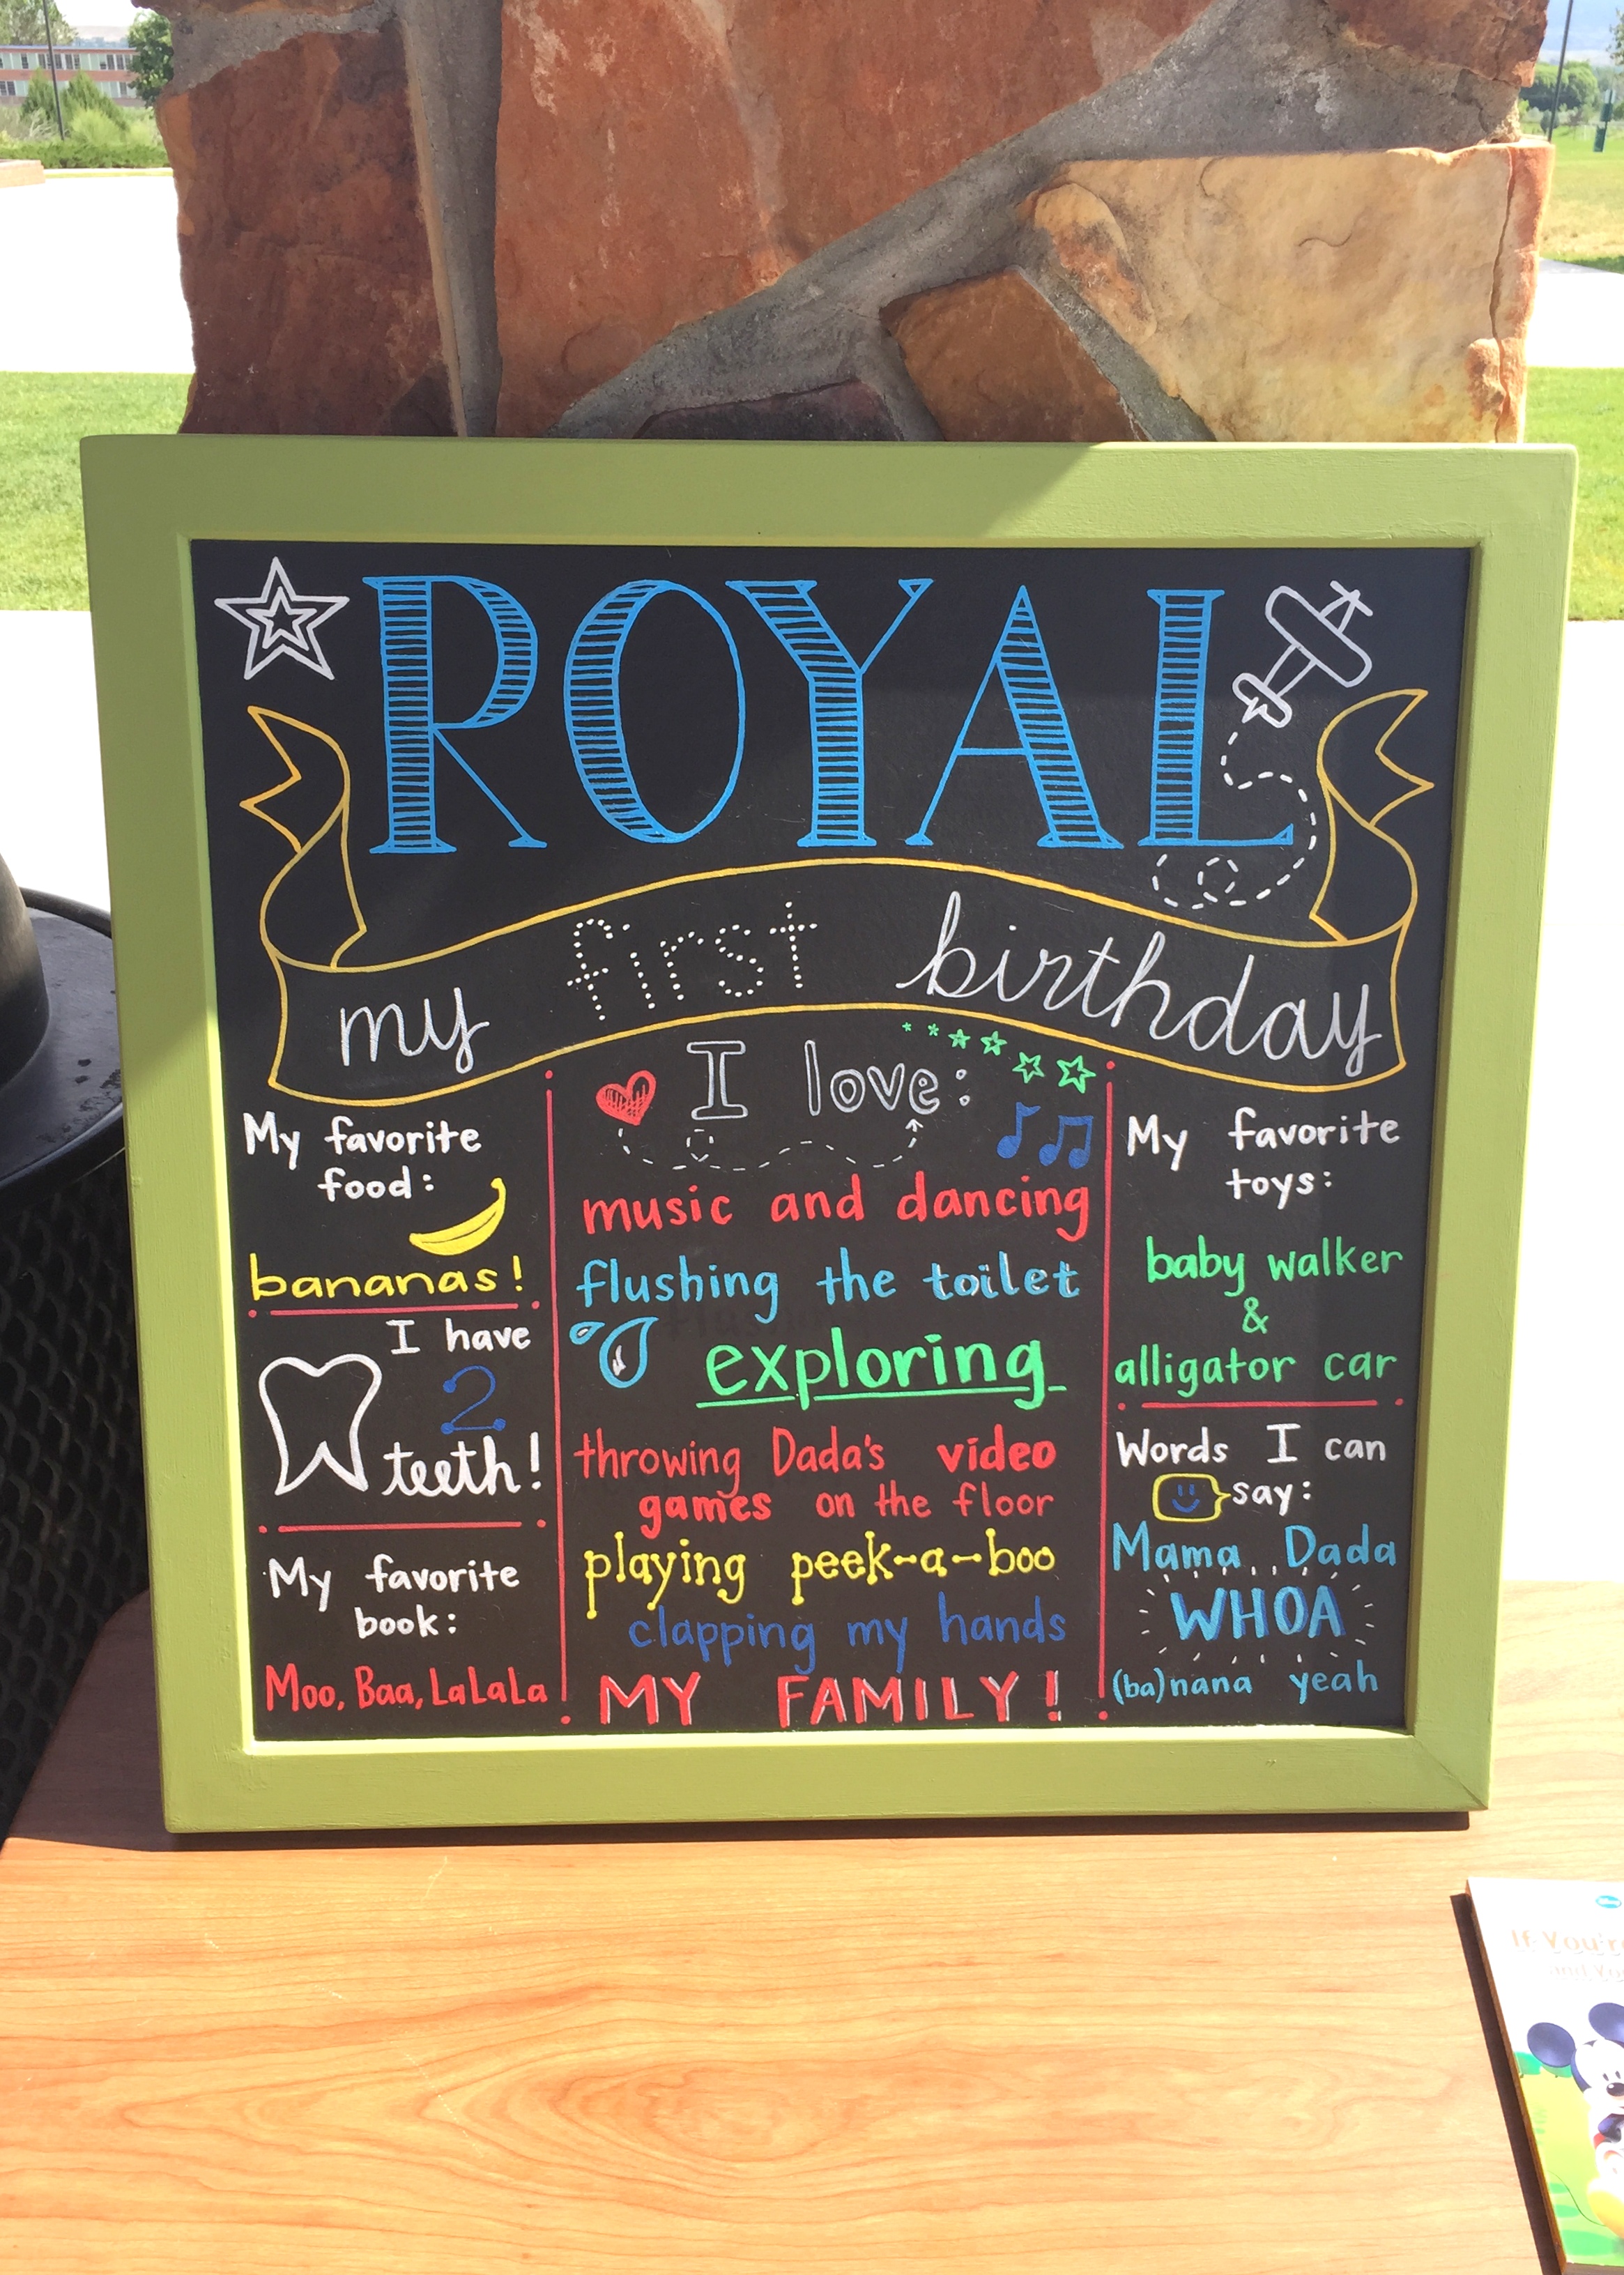 ROYAL
my first birthday
My favorite
food:
bananas!
I have
2
teeth!
My favorite
book:
Moo, Baa, LaLaLa
I love:
music and dancing
flushing the toilet
exploring
throwing Dada's video
games on the floor
playing peek-a-boo
clapping my hands
MY FAMILY!
My favorite
toys:
baby walker
&
alligator car
Words I can
say:
Mama, Dada
WHOA
(ba)nana yeah
If You're
and You